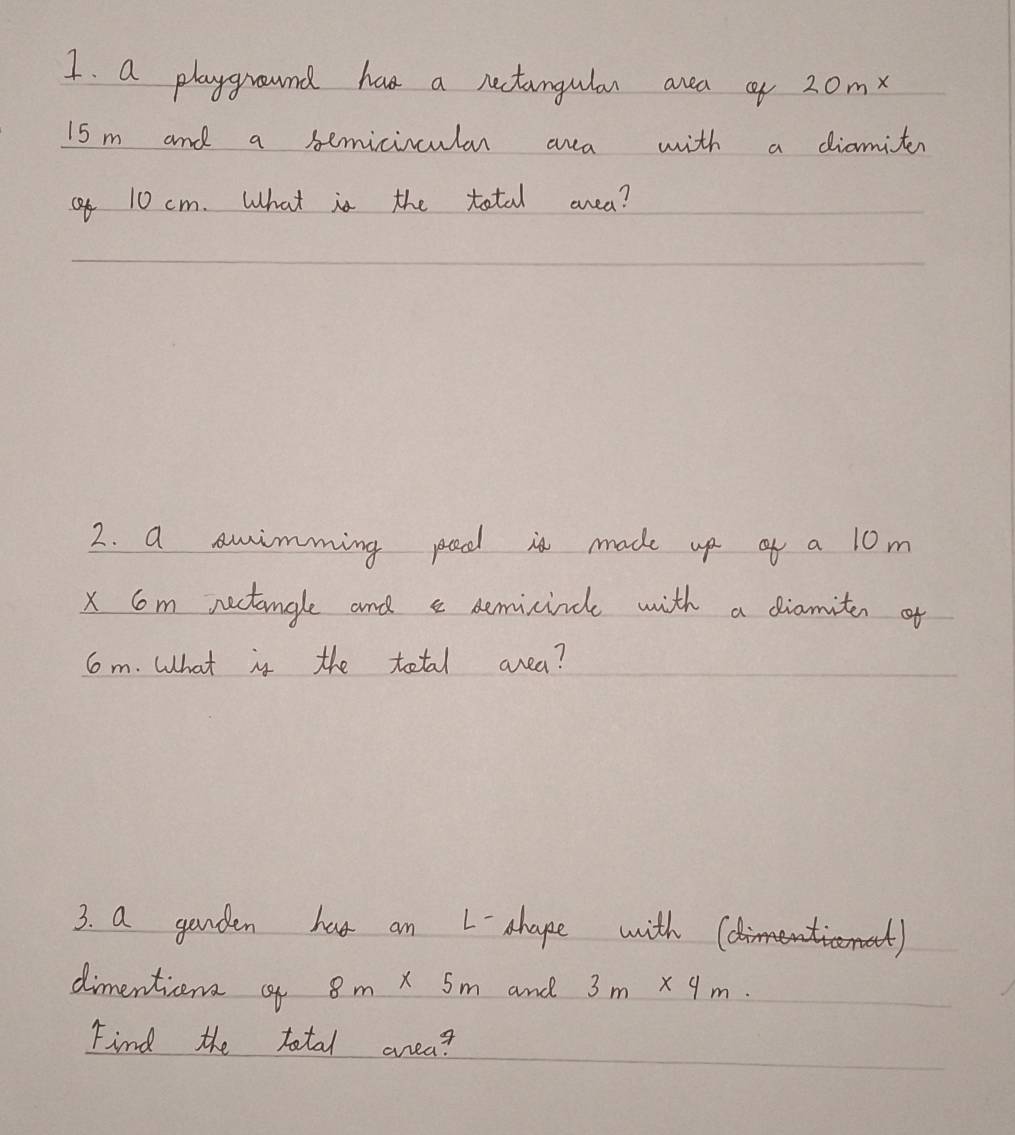 1. a playground has a rectangular area of 20m x
15 m and a semicircular area with a diamiter
of 10 cm. What is the total area?
2. a swimming pool is made up of a 10 m
x 6m rectangle and a semicircle with a diamiter of
6 m. What is the total area?
3. a garden has an L-shape with (dimentional)
dimentions of 8 m x 5m and 3 m x 4 m.
Find the total area?